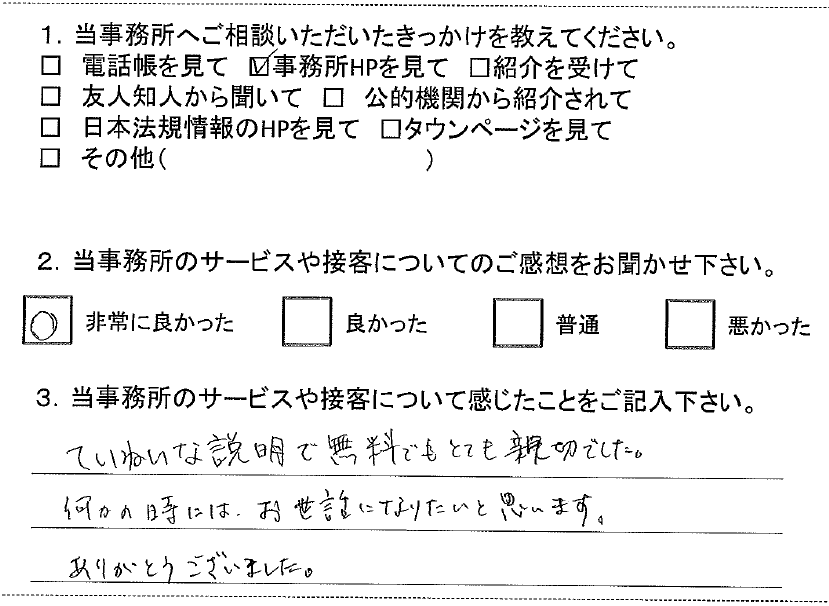 1. 当事務所へご相談いただいたきっかけを教えてください。
□ 電話帳を見て ☑事務所HPを見て □紹介を受けて
□ 友人知人から聞いて □ 公的機関から紹介されて
□ 日本法規情報のHPを見て □タウンページを見て
□ その他( )
2. 当事務所のサービスや接客についてのご感想をお聞かせ下さい。
○ 非常に良かった □ 良かった □ 普通 □ 悪かった
3. 当事務所のサービスや接客について感じたことをご記入下さい。
ていねいな説明で無料でもとても親切でした。
何かの時には、お世話になりたいと思います。
ありがとうございました。